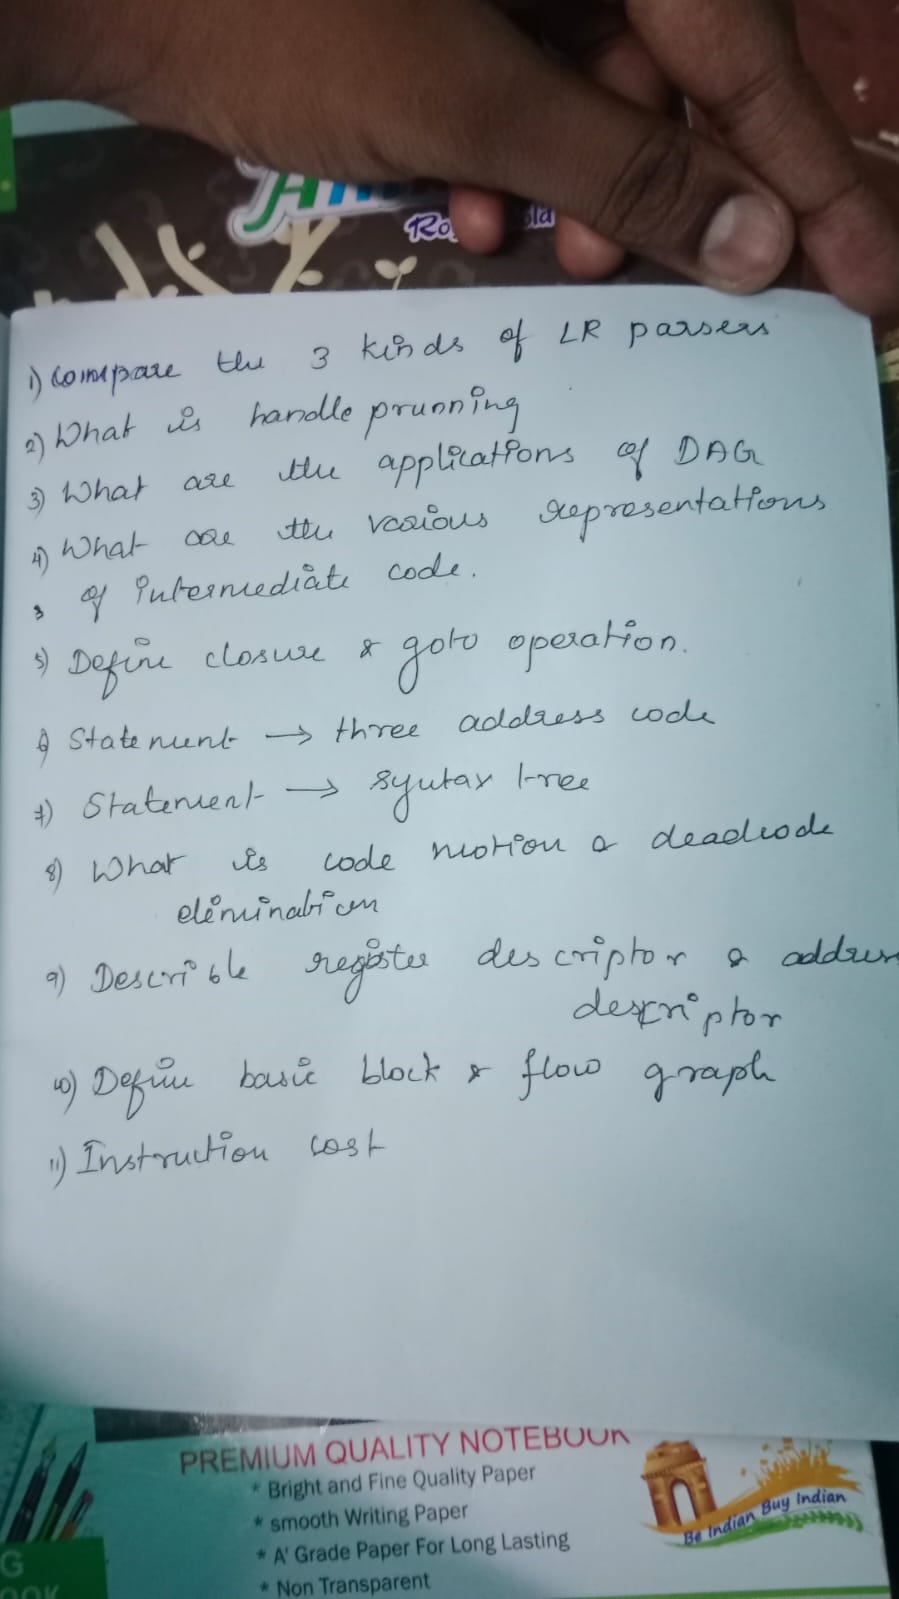 1) Compare the 3 kinds of LR parsers
2) What is handle prunning
3) What are the applications of DAG
4) What are the various representations
of intermediate code.
5) Define closure & goto operation.
6) Statement → three address code
7) Statement → syntax tree
8) What is code motion & deadcode
elimination
9) Describle register descriptor & address
descriptor
10) Define basic block & flow graph
11) Instruction cost
PREMIUM QUALITY NOTEBOOK
* Bright and Fine Quality Paper
* smooth Writing Paper
* A' Grade Paper For Long Lasting
* Non Transparent
Be Indian Buy Indian